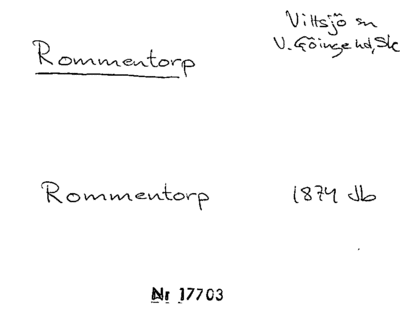 Rommentorp
Vittsjö sn
V. Göinge hd, Sk
Rommentorp 1874 db
Nr 17703